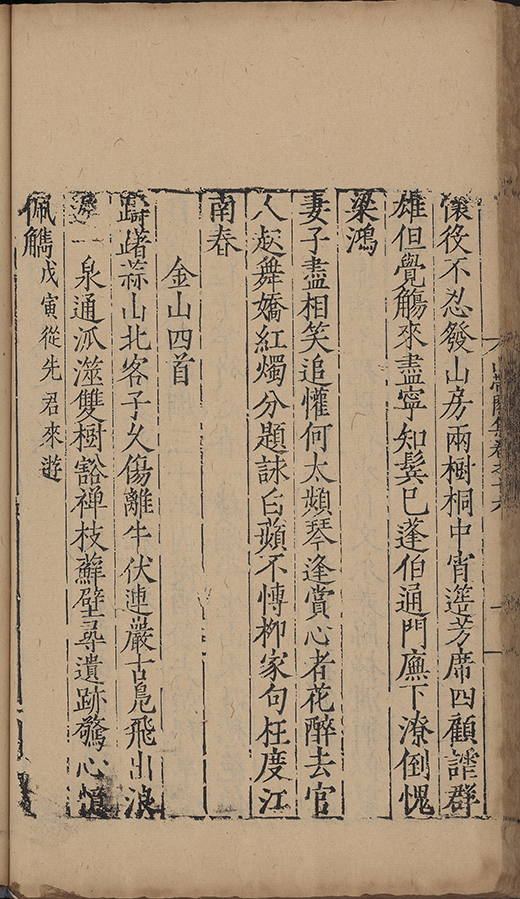 懷役不忍發山房兩樹桐中宵筵芳席四顧讙群
雄但覺觴來盡寧知鬂巳蓬伯通門廡下潦倒愧
梁鴻
妻子盡相笑追懽何太頻琴逢賞心者花醉去官
人起舞嬌紅燭分題詠白蘋不慱柳家句枉度江
南春
金山四首
躊躇蒜山北客子久傷離牛伏連巖古鳧飛出浪
一泉通沠澨雙樹豁禅枝蘚壁尋遺跡驚心憶
佩觹戊寅從先君來遊